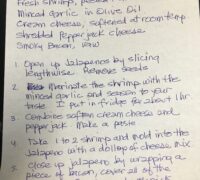 Fresh shrimp, peeled
Minced garlic in Olive Oil
Cream cheese, softened at room temp
Shredded Pepper jack cheese
Smoky Bacon, raw
1. Open up Jalapenos by slicing
lengthwise. Remove seeds
2. Marinate the shrimp with the
minced garlic and season to your
taste I put in fridge for about 1 hr
3. Combine soften cream cheese and
pepper jack. Make a paste
4 Take 1 to 2 shrimp and mold into the
Jalapeno and a dollop of cheese mix
5. Close up jalapeno by wrapping a
piece of bacon, cover all of the